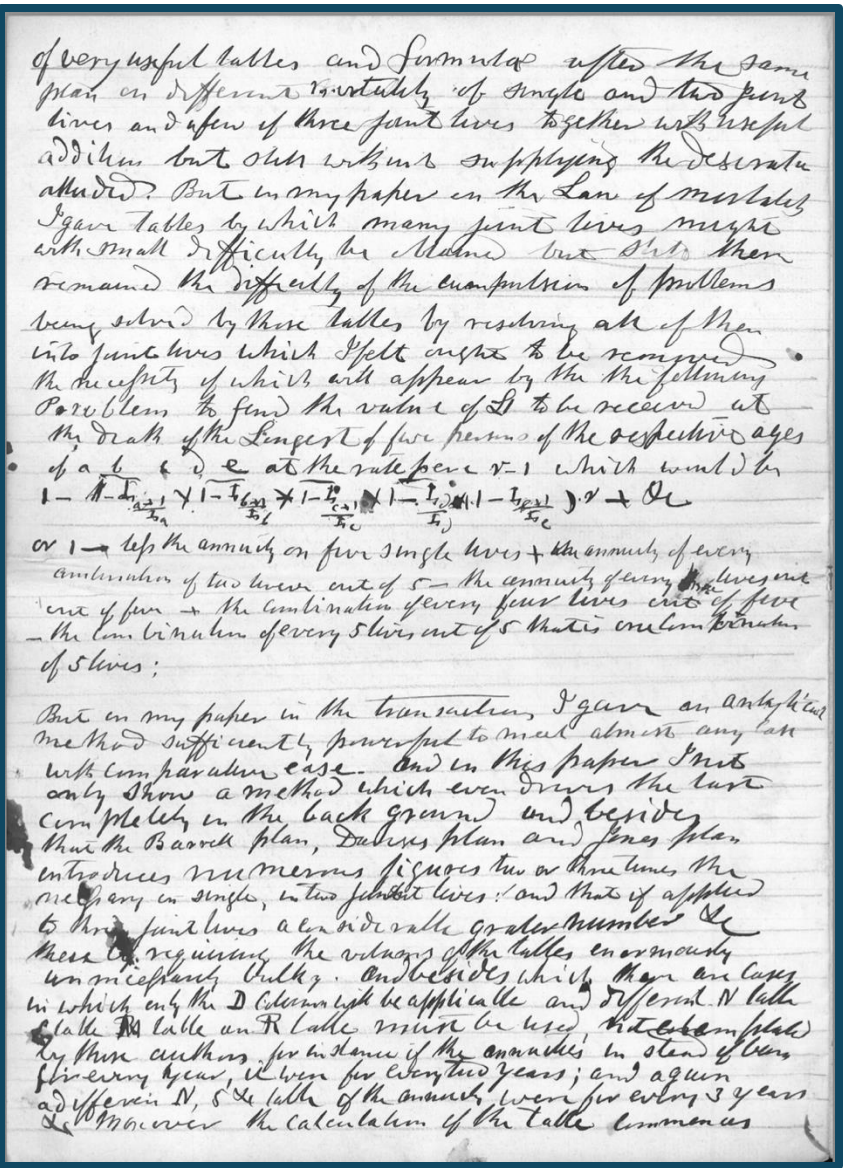 of very useful tables and formulae after the same
plan on different mortality of single and two joint
lives and a few of three joint lives together with useful
addition but still without supplying the desirata
alluded? But in my paper on the Law of mortality
I gave tables by which many joint lives might
with small difficulty be obtained but still there
remained the difficulty of the compulsion of problems
being solved by those tables by resolving all of them
into joint lives which I felt ought to be removed
the necessity of which will appear by the the following
Problem to find the value of £1 to be received at
the death of the Longest of five persons of the respective ages
of a b c d e at the rate per r-1 which would be
or 1 – less the annuity on five single lives + the annuity of every
combination of two out of 5 – the annuity of every three lives out
out of five + the combination of every four lives out of five
– the combination of every 5 lives out of 5 that is one combination
of 5 lives;
But in my paper in the transactions I gave an analytical
method sufficiently powerful to meet almost any case
with comparative ease. And in this paper I not
only show a method which even drives the last
completely in the back ground and besides
that the Barrett plan, Davies plan and Jones plan
introduces numerous figures two or three times the
necessary in single, in two joint lives: and that if applied
to three joint lives a considerable greater number &c
these requiring the volumes of the tables enormously
unnecessarily bulky. And besides which there are cases
in which only the D Column will be applicable and different N table
table M table an R table must be used, not
by those authors for instance if the annuities in stead of being
for every year, it were for every two years; and again
a different N, S &c table if the annuity were for every 3 years
&c Moreover the calculation of the table commences